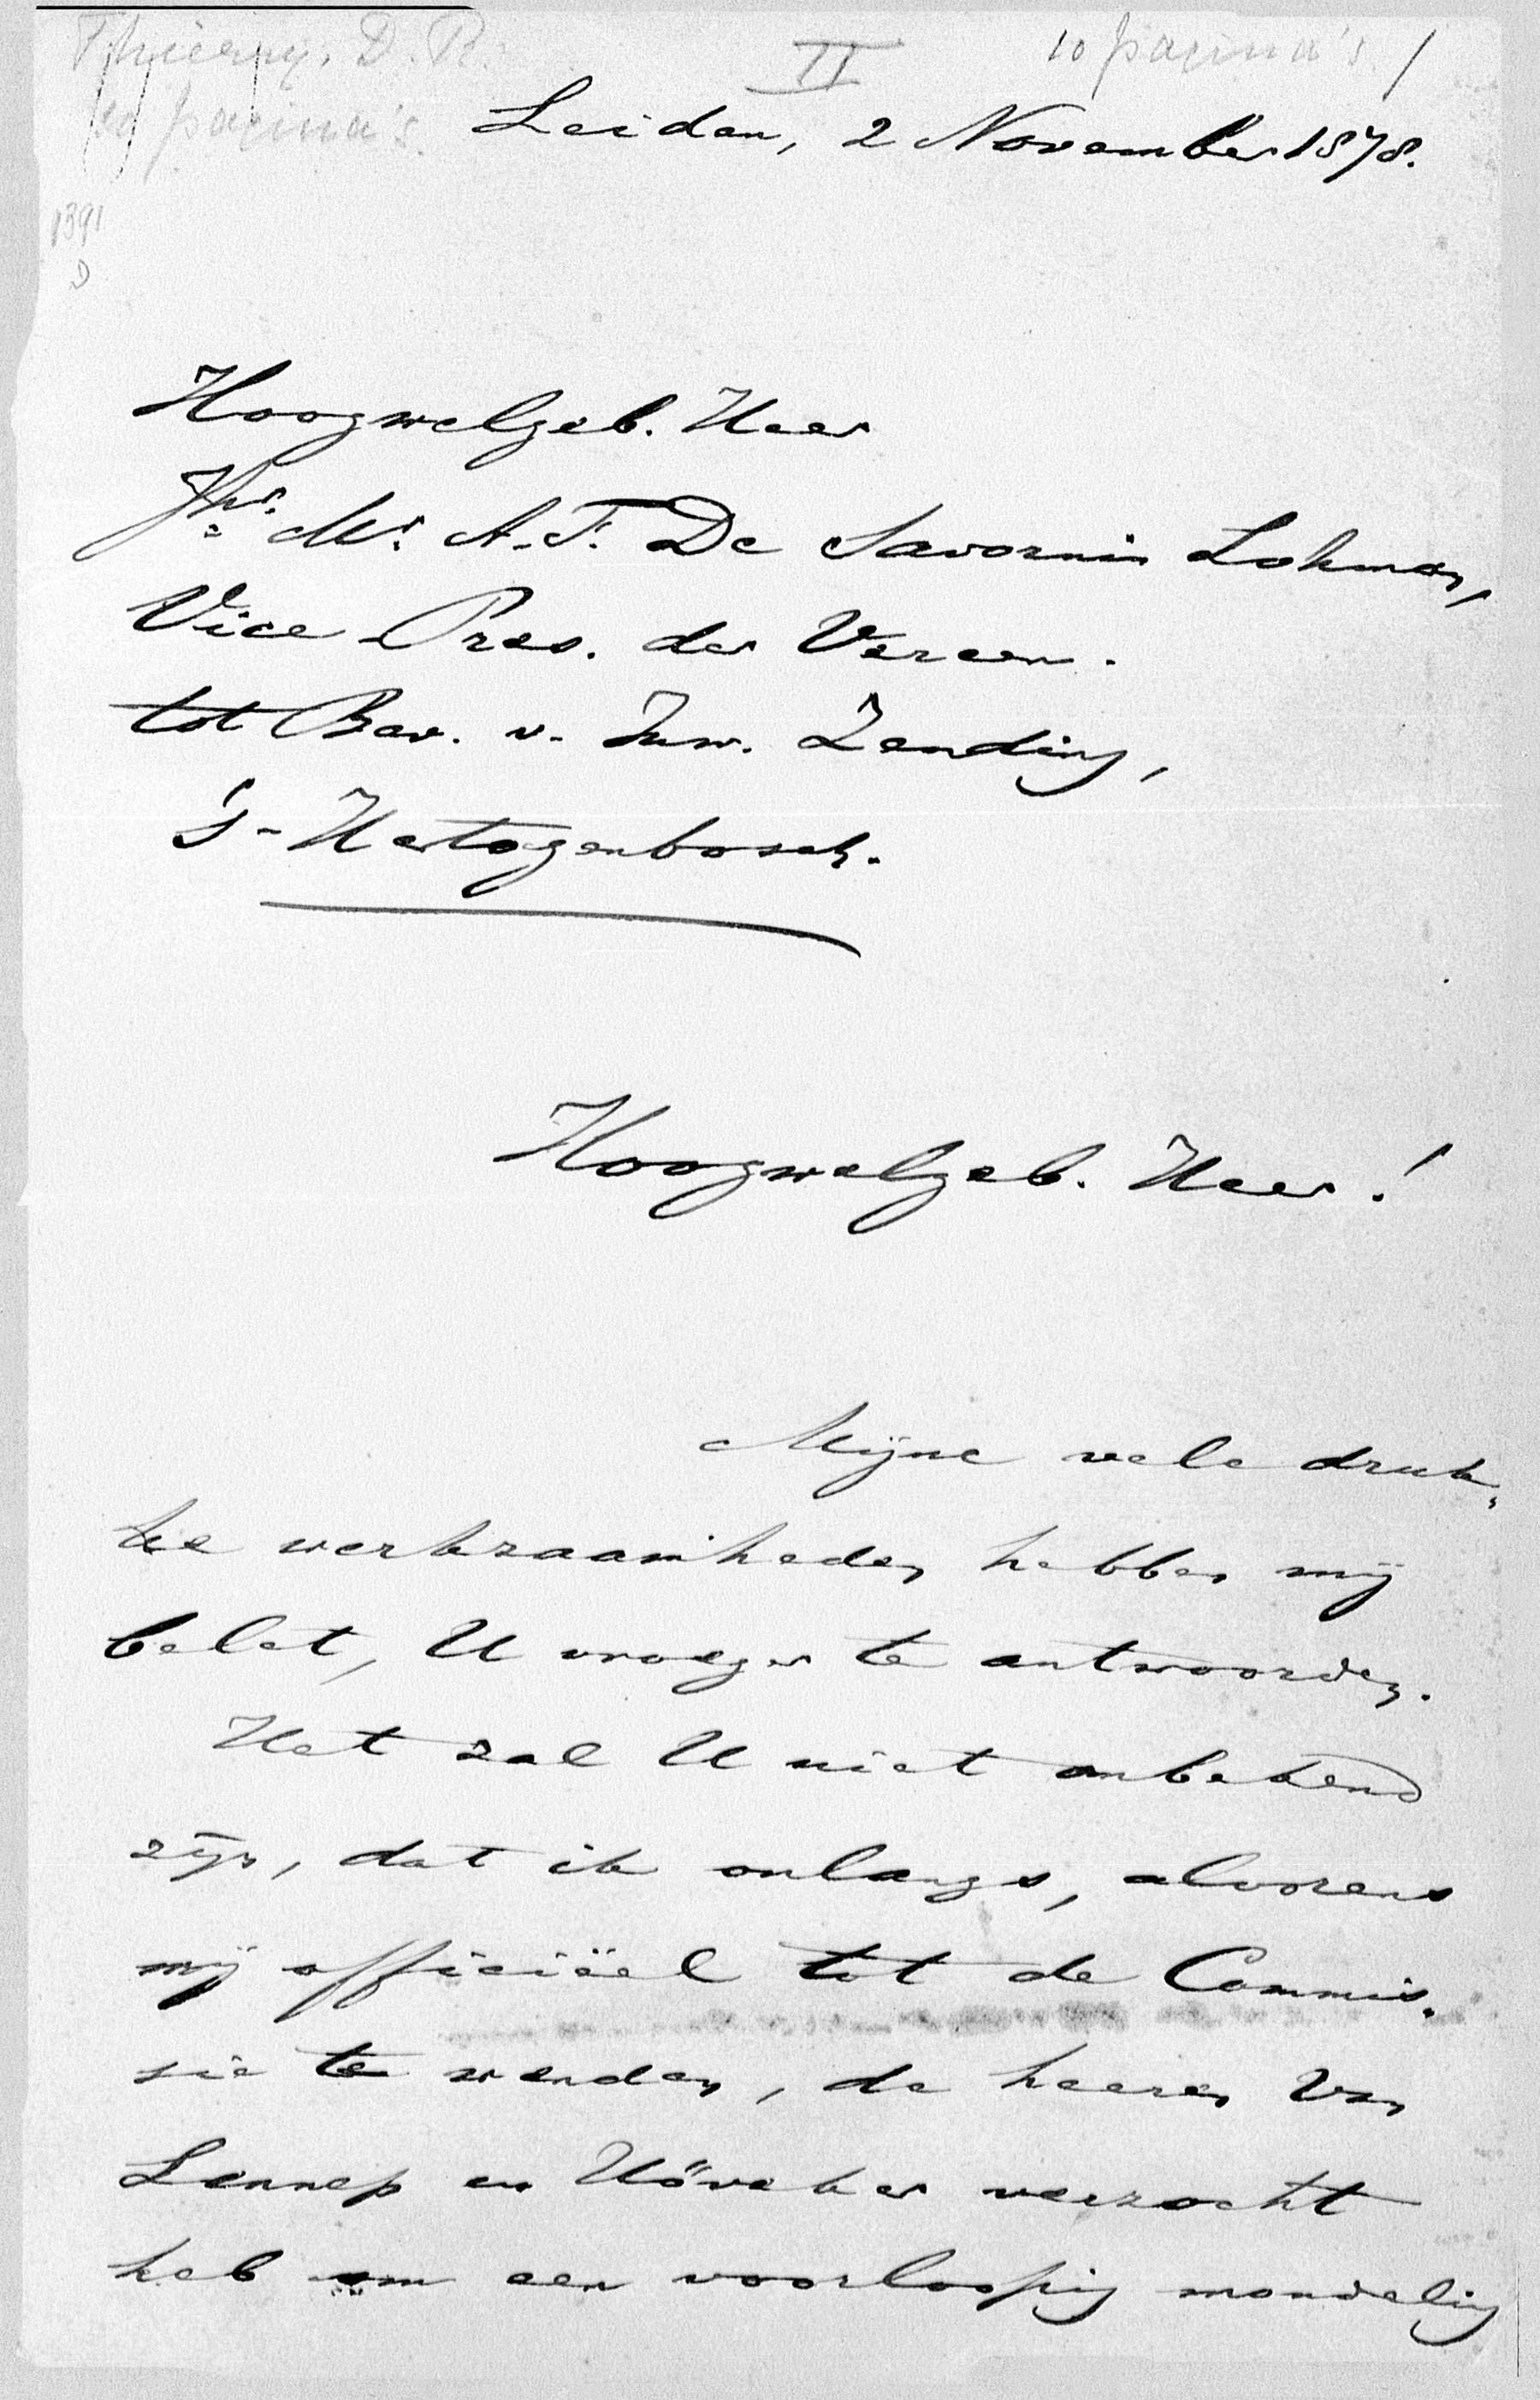 Thierry, D. R.
II
10 pagina's. 1
10 pagina's.
Leiden, 2 November 1878.
1391
D
Hoogwelgeb. Heer
Jhr. Mr. A.F. De Savornin Lohman,
Vice Pres. der Vereen.
tot Bev. v. Inw. Zending,
'S-Hertogenbosch.
Hoogwelgeb. Heer!
Mijne vele druk-
ke werkzaamheden hebben mij
belet, U vroeger te antwoorden.
Het zal U niet onbekend
zijn, dat ik onlangs, alvorens
mij officiëel tot de Commis-
sie te wenden, de heeren Van
Lennep en Höveker verzocht
heb om een voorloopig mondeling